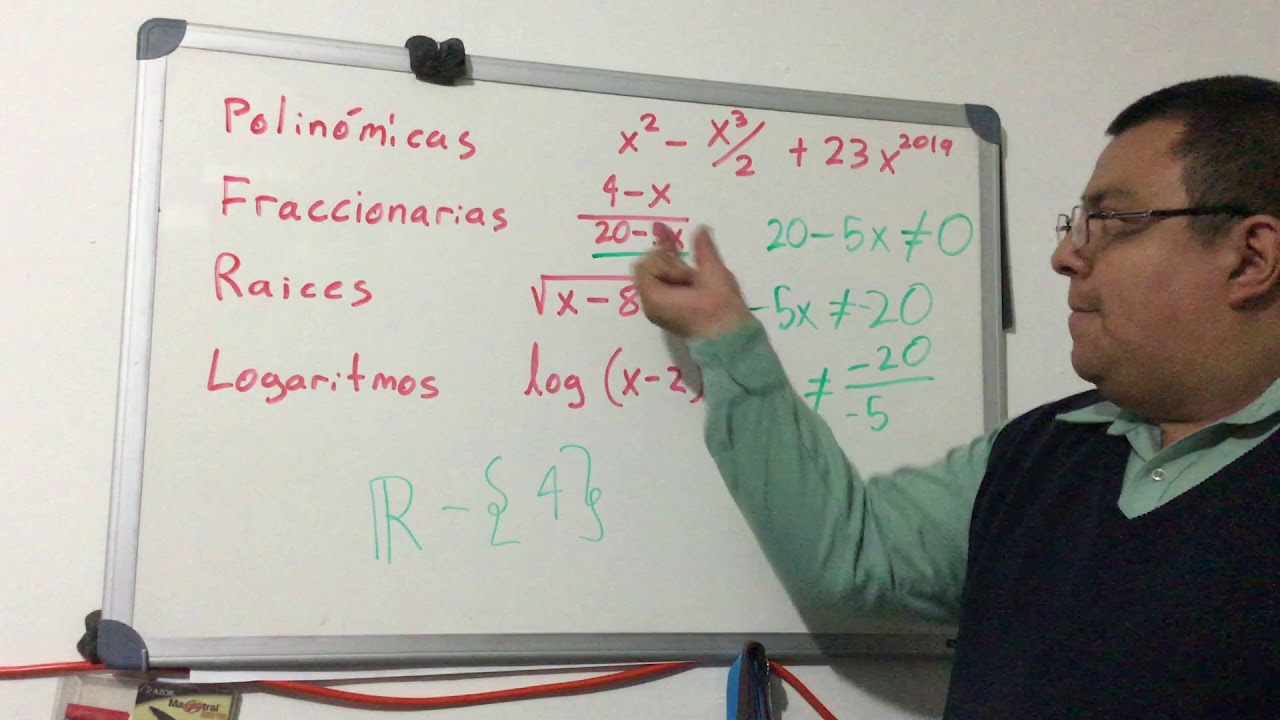 Polinómicas x² - x³/2 + 23x²⁰¹⁹
Fraccionarias 4-x
20-5x
20-5x≠0
Raices √x-8
-5x≠-20
Logaritmos log (x-2)
≠ -20
-5
ℝ-{4}
AZOR
Magistral